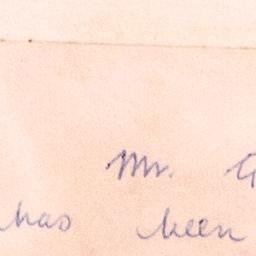 Mr. G
has been